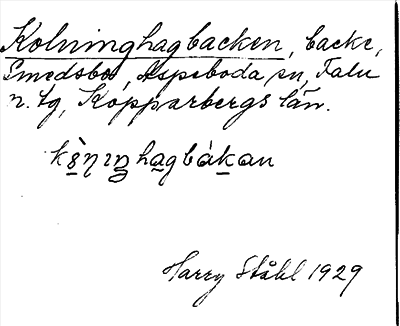 Kolninghagbacken, backe,
Smedsbo, Aspeboda sn, Falu
n. tg, Kopparbergs län.
hagbákan
Harry Ståhl 1929